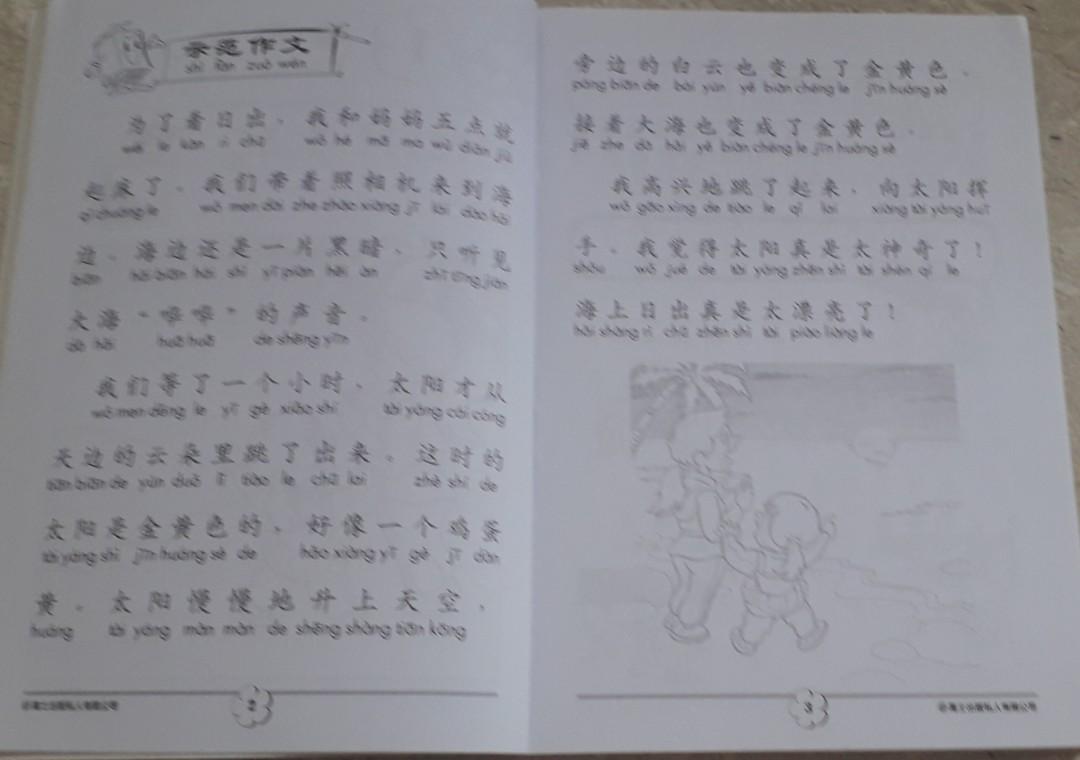 示范作文
shì fàn zuò wén
为了看日出，我和妈妈五点就
wèi le kàn rì chū wǒ hé mā ma wǔ diǎn jiù
起床了。我们带着照相机来到海
qǐ chuáng le wǒ men dài zhe zhào xiàng jī lái dào hǎi
边。海边还是一片黑暗，只听见
biān hǎi biān hái shì yī piàn hēi àn zhǐ tīng jiàn
大海“哗哗”的声音。
dà hǎi huā huā de shēng yīn
我们等了一个小时，太阳才从
wǒ men děng le yī gè xiǎo shí tài yáng cái cóng
天边的云朵里跳了出来。这时的
tiān biān de yún duǒ lǐ tiào le chū lai zhè shí de
太阳是金黄色的，好像一个鸡蛋
tài yáng shì jīn huáng sè de hǎo xiàng yī gè jī dàn
黄。太阳慢慢地升上天空，
huáng tài yáng màn màn de shēng shàng tiān kōng
2
旁边的白云也变成了金黄色，
páng biān de bái yún yě biàn chéng le jīn huáng sè
接着大海也变成了金黄色。
jiē zhe dà hǎi yě biàn chéng le jīn huáng sè
我高兴地跳了起来，向太阳挥
wǒ gāo xìng de tiào le qǐ lai xiàng tài yáng huī
手。我觉得太阳真是太神奇了！
shǒu wǒ jué de tài yáng zhēn shì tài shén qí le
海上日出真是太漂亮了！
hǎi shàng rì chū zhēn shì tài piào liàng le
3